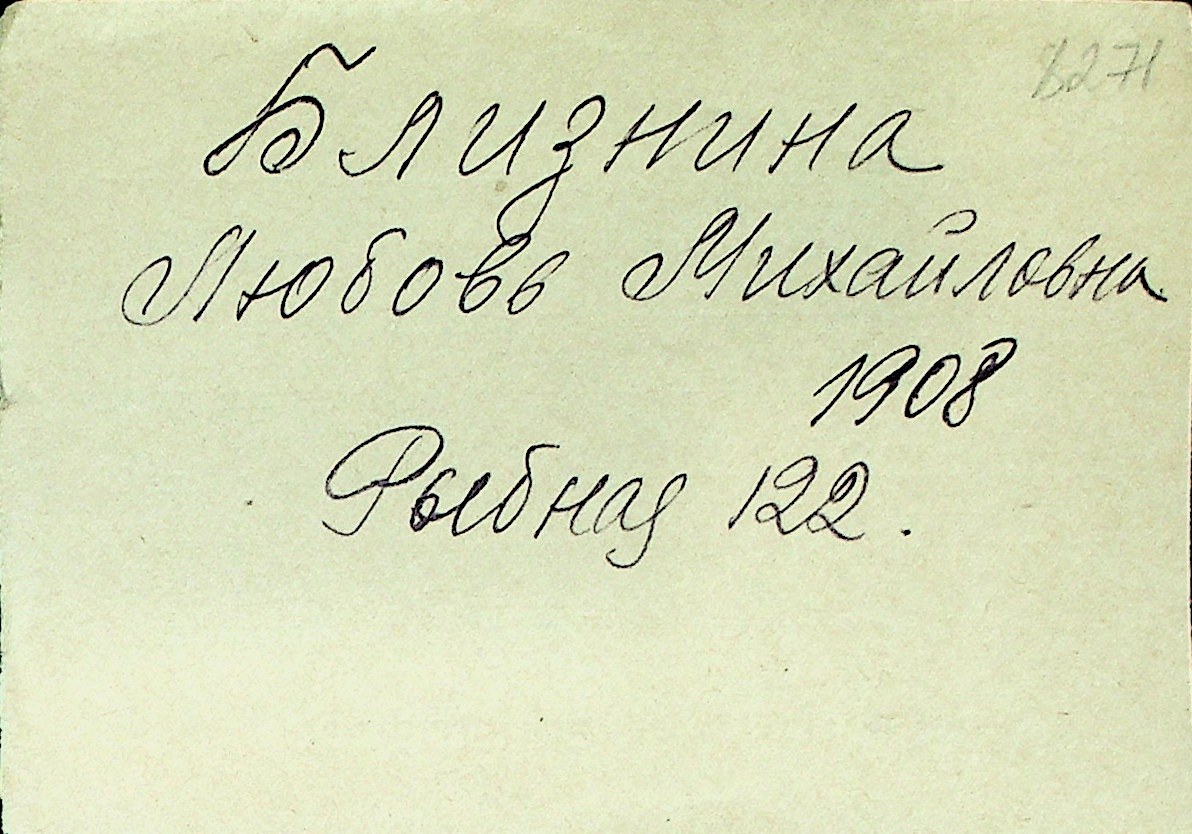 Близнина
Любовь Михайловна
1908
Рыбная 122.